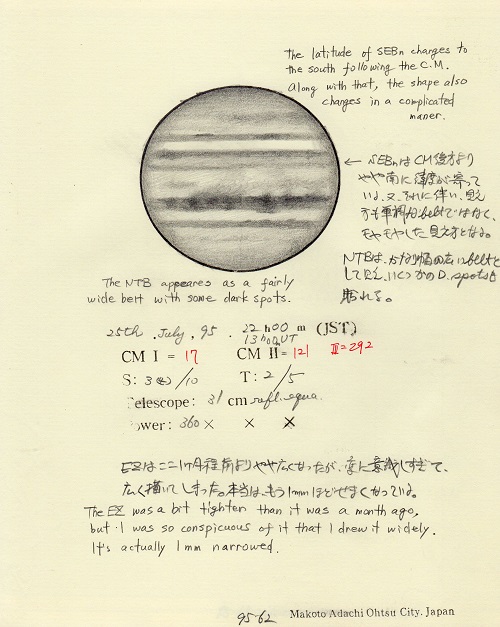 The latitude of SEBn changes to
the south following the C.M.
Along with that, the shape also
changes in a complicated
maner.
← SEBnはCM後方より
やや南に濃度が寄って
いる。又、それに伴い、見え
方も単調なbeltではなく、
モヤモヤした見え方となる。
NTBは、かなり幅の広いbeltと
して見え、いくつかのD.spotsも
見れる。
The NTB appeares as a fairly
wide bert with some dark spots.
25th .July, 95 . 22h00m (JST)
13h00UT
CM I = 17 CM II = 121 III=292
S: 3 /10 T: 2/5
elescope: 31 cm refl. equa.
ower: 360 × × ×
EZはここ1ヶ月程前よりやや広くなったが、変に意識しすぎて、
広く描いてしまった。本当は、もう1mmほどせまくなっている。
The EZ was a bit tighter than it was a month ago,
but I was so conspicuous of it that I drew it widely.
It's actually 1mm narrowed.
95-62 Makoto Adachi Ohtsu City, Japan